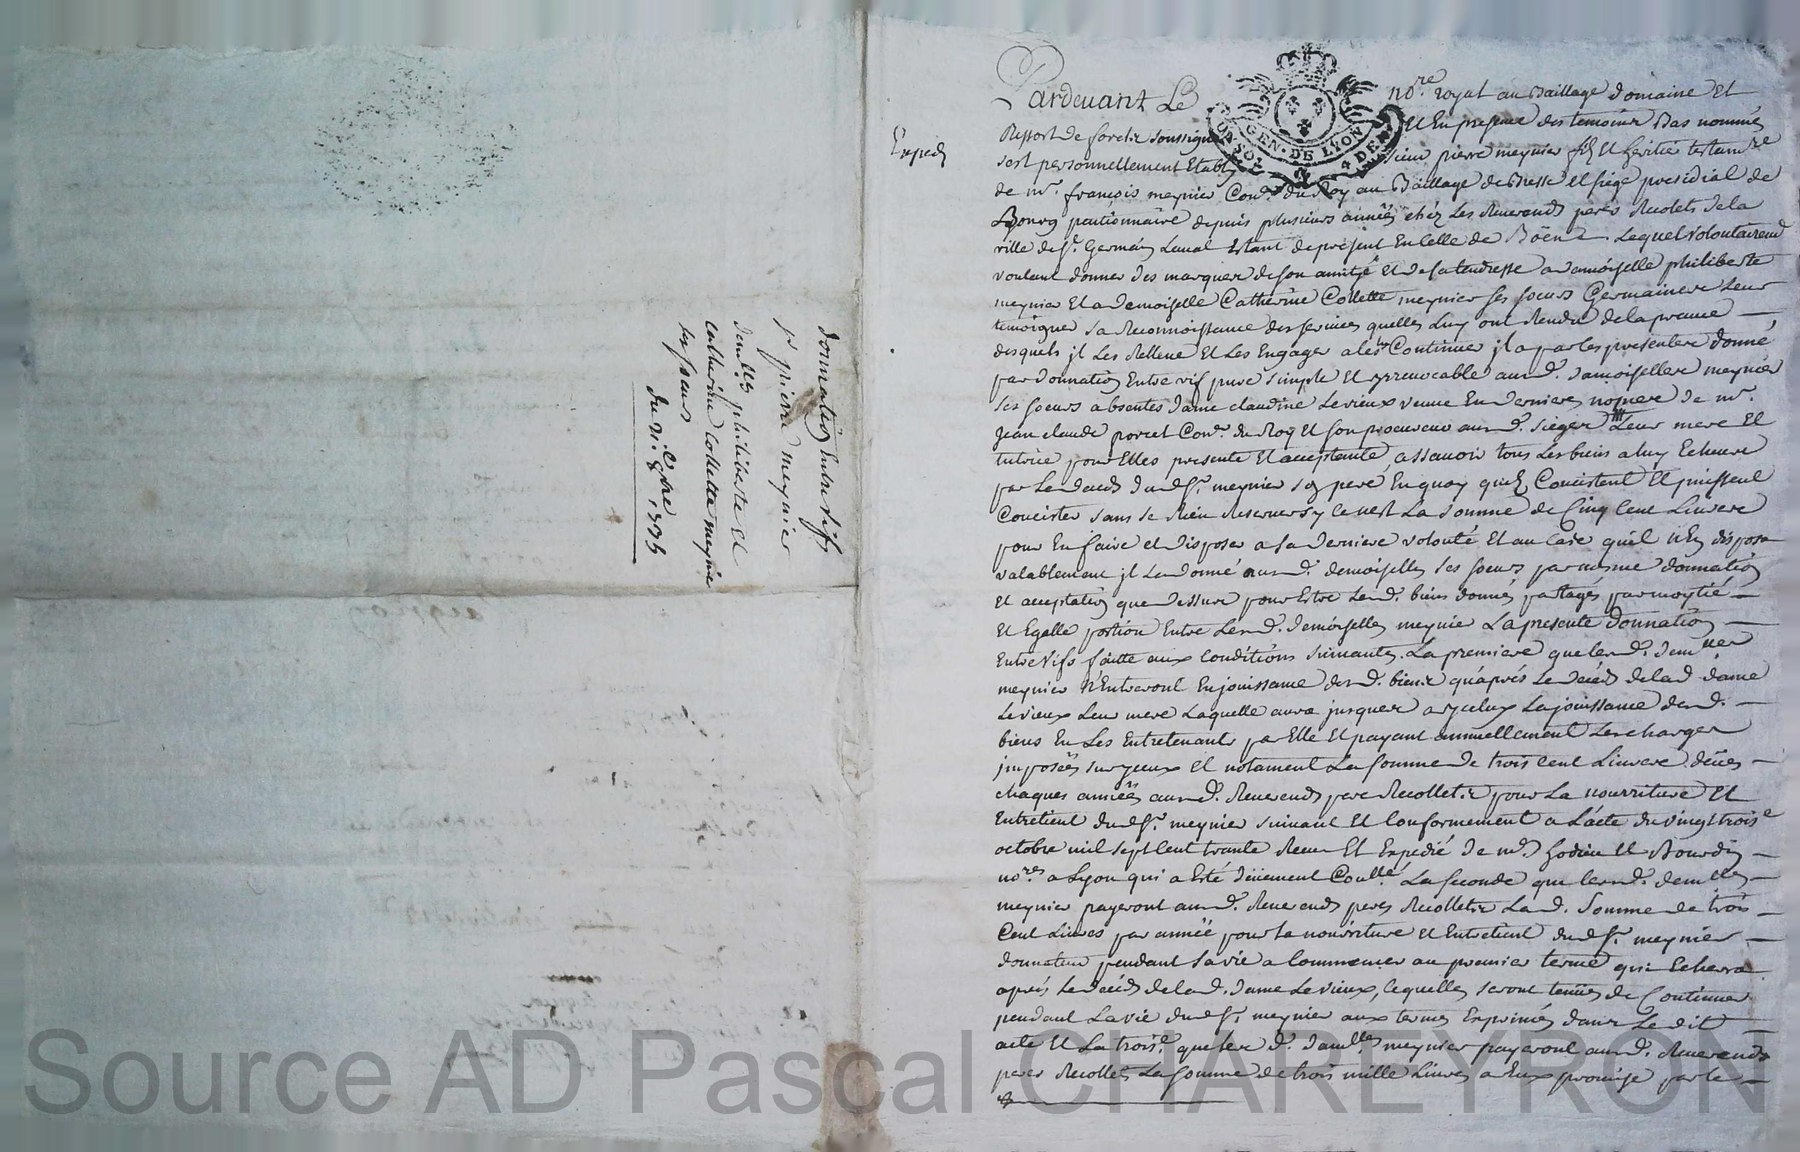 donnation Entre Vifs
Sr pierre meynier
demlles philiberte et
catherine collette meynier
ses soeurs
du 8bre 1735
Expedié
Pardevant Le nore. royal au Baillage domaine Et
Ressort de forest soussigné Et En presence des temoins Bas nommés
sest personnellement Etably sieur pierre meynier fils Et heritié testamre
de mr. françois meynier Conr. du Roy au Baillage de Bresse Et siége presidial de
Bourg pentionnaire depuis plusieurs années chéz Les Reverends peres Recolets de la
ville de St. Germain Laval Estant de présent En Celle de Böen Lequel volontairement
voulant donner des marques de son amitié Et de sa tendresse a damoiselle philiberte
meynier Et a demoiselle Catherine Collette meynier ses soeurs Germaines Leur
temoigner sa Reconnoissance des services quelles Luy ont Rendu de la preuve
desquels jl Les Relleve Et Les Engager a les Continuer jl a par les presentes donné
par donnation Entre vif pure simple Et yrrevocable ausd. damoiselles meynier
ses soeurs absentes dame claudine Levieux veuve En dernieres nopces de mr.
Jean claude porret Conr. du Roy Et son procureur ausd. sieges Leur mere Et
tutrice pour Elles presente Et acceptante, assavoir tous Les biens a luy Echeus
par Le deceds dudSr. meynier son pere En quoy quils Concistent Et puissent
Concister sans se Rien Reserver sy ce nest La somme de Cinq Cent Livres
pour En faire et disposer a sa derniere volonté Et au Cas quil nEn dispose
valablement jl La donne ausd. demoiselles ses soeurs par mesme donnation
Et acceptation que dessus pour Estre Lesd. biens donnés partagés par moytié
Et Egalle portion Entre Lesd. demoiselles meynier La presente donnation
Entre Vifs faitte aux conditions suivantes. La premiere que lesd. demlles
meynier n'Entreront En jouissance desd. biens quáprés Le décéds de lad dame
Levieux Leur mere Laquelle aura jusques a yceluy La jouissance desd.
biens En Les Entretenants par Elle Et payant annuellement Les charges
jmposées sur yceux Et notament La somme de trois cent Livres dües
chaques années ausd. Reverends pere Recollets pour La nourriture Et
Entretient dudSr. meynier suivant Et Conformement a L'acte du vingt trois
octobre mil sept Cent trante Receu Et Expedié de mes Et Bourdin
nores a Lyon qui a Esté düement Conllé. La seconde que lesd. demlles
meynier payeront ausd. Reverends peres Recollets Lad. somme de trois
Cent Livres par année pour La nourriture Et Entretient dudSr. meynier
donnateur pendant sa vie a Commencer au premier terme qui Echerra
aprés Le décéds de lad. dame Levieux, lequelles seront tenües de Continuer
pendant La vie dudSr. meynier aux termes Exprimés dans Le dit
acte Et La trois.e que les d. damlles meynier payeront ausd. Reverends
peres Recollets La somme de trois mille Livres a Eux promise par le
GEN. DE LYON
UN SOL 4 DEN
Source AD Pascal CHAREYRON